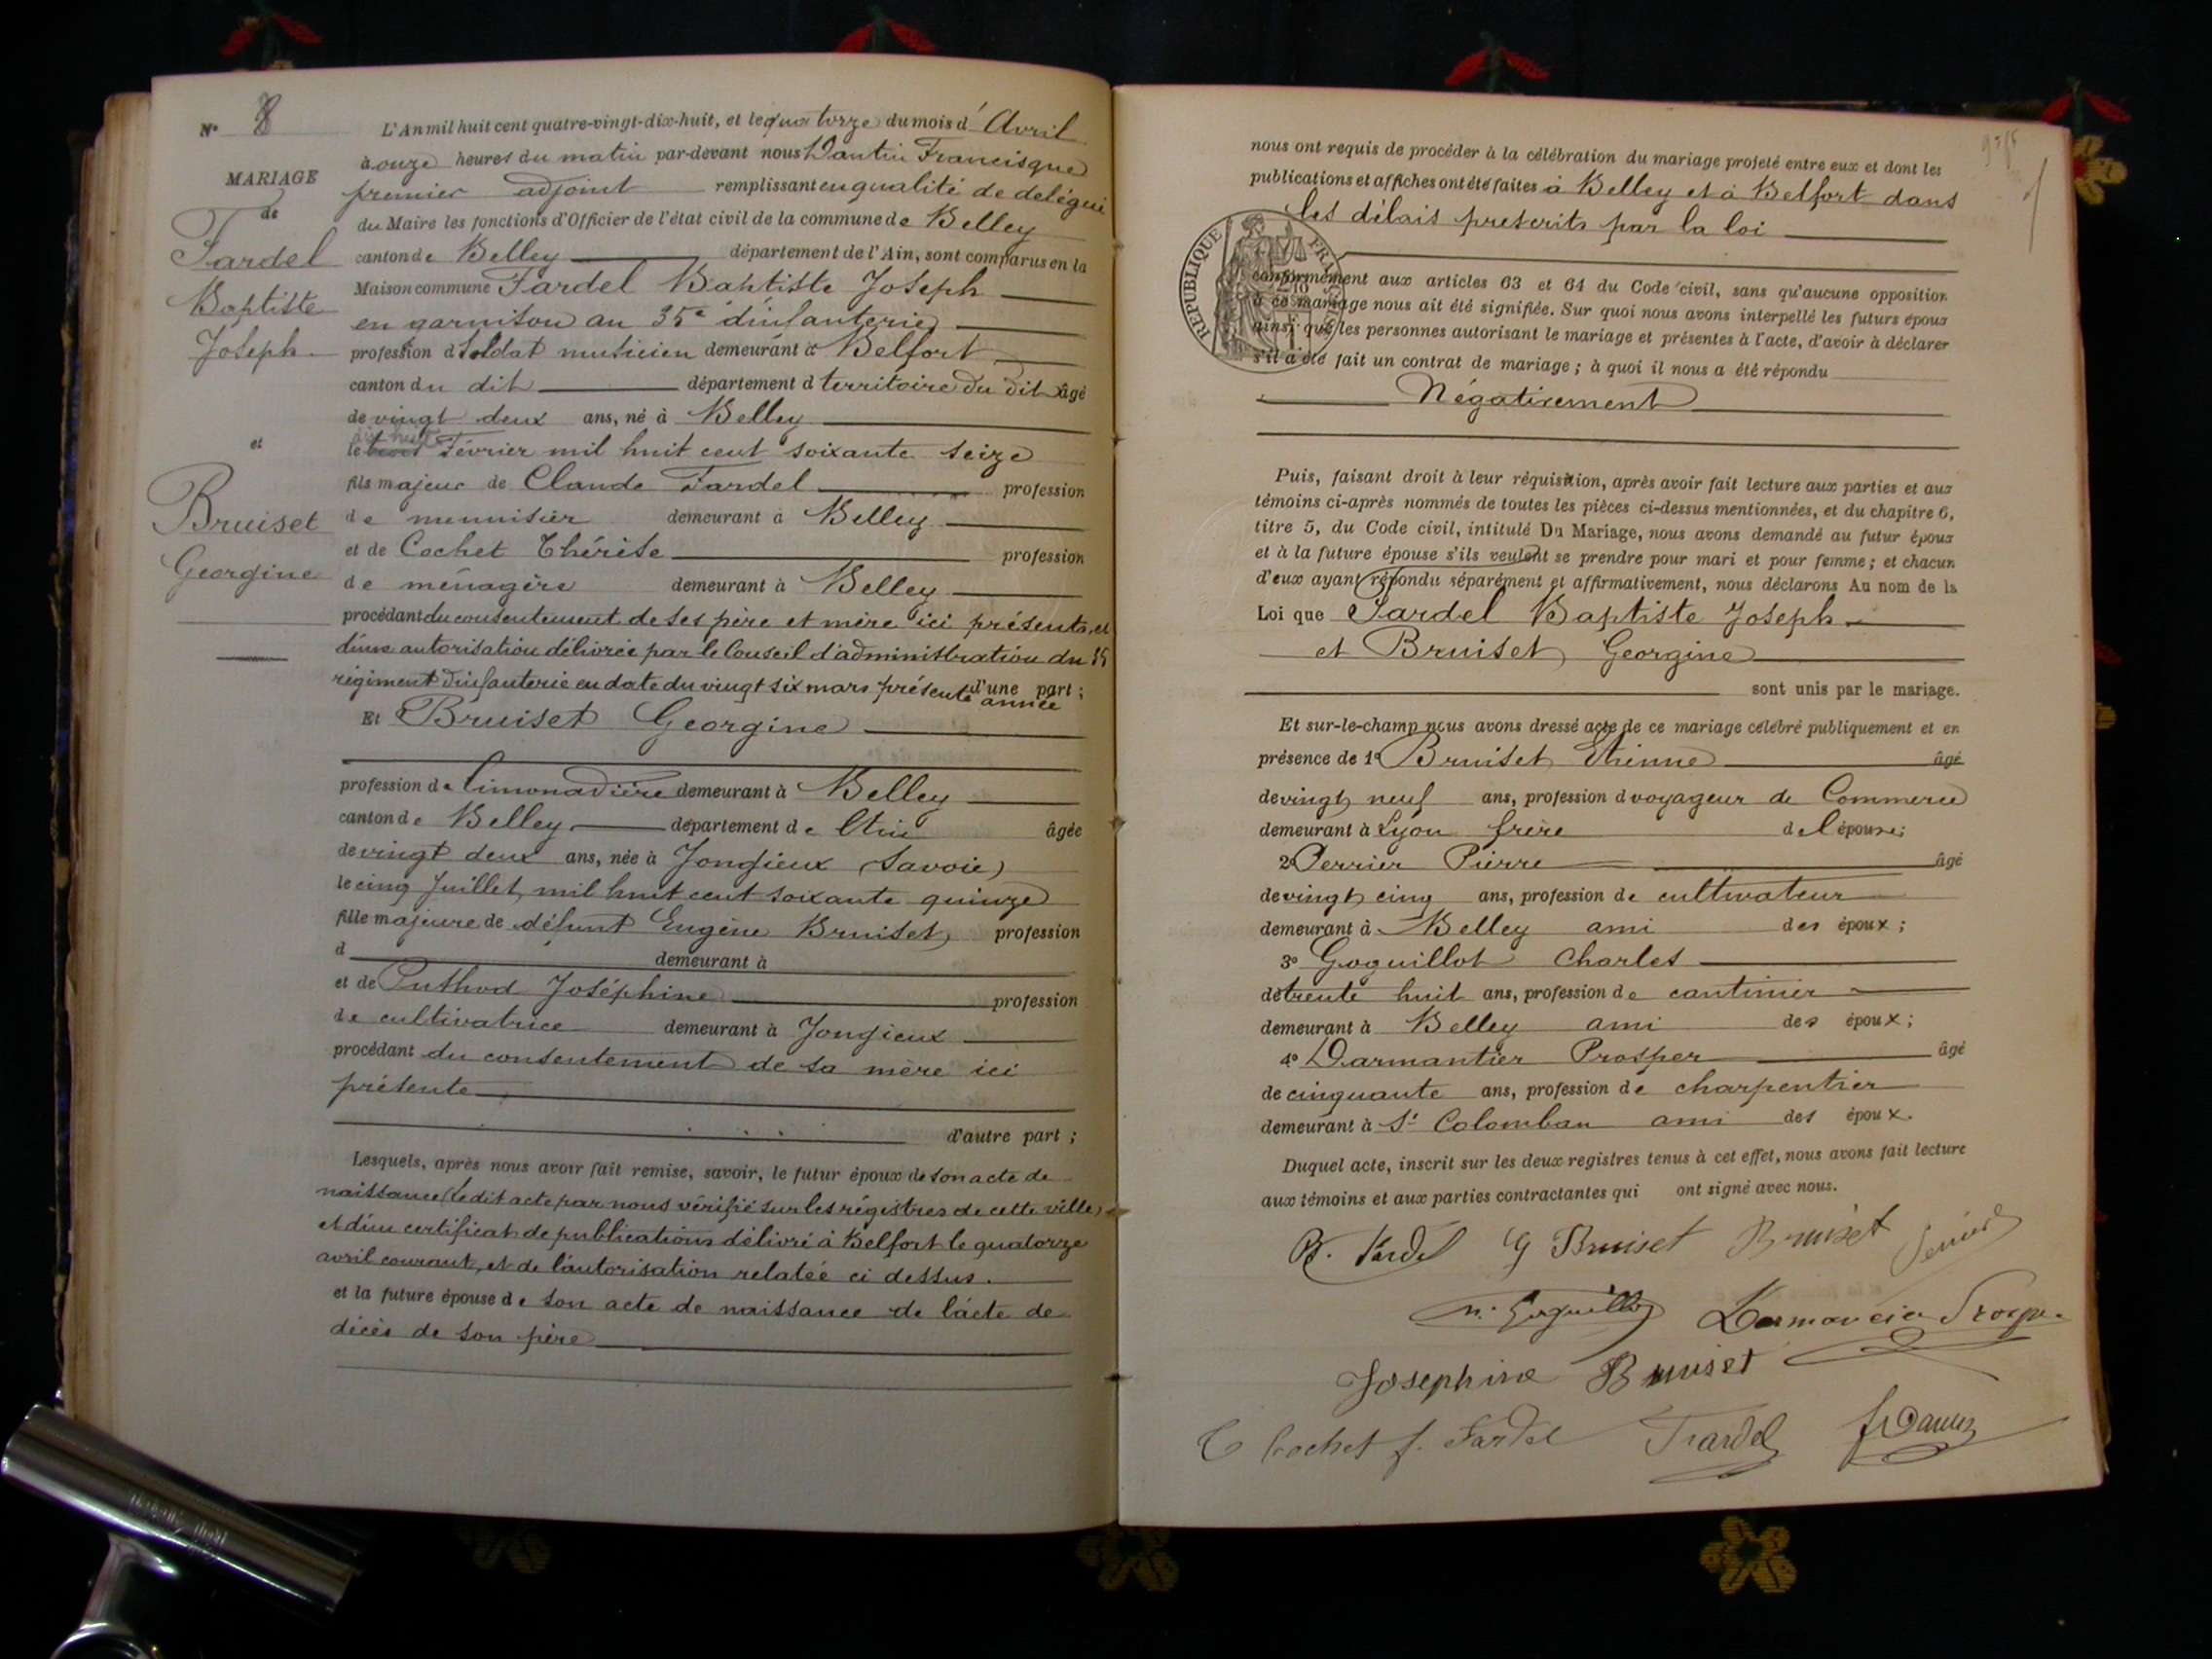 N° 8
MARIAGE
de
Fardel
Baptiste
Joseph
et
Bruiset
Georgine
L'An mil huit cent quatre-vingt-dix-huit, et le quatorze du mois d'Avril
à onze heures du matin par-devant nous Dantin Francisque
premier adjoint remplissant en qualité de delégué
du Maire les fonctions d'Officier de l'état civil de la commune de Belley
canton de Belley département de l'Ain, sont comparus en la
Maison commune Fardel Baptiste Joseph
en garnison au 35e d'infanterie
profession d Soldat musicien demeurant à Belfort
canton du dit département d territoire du dit âgé
de vingt deux ans, né à Belley
le Février mil huit cent soixante seize
fils majeur de Claude Fardel profession
de menuisier demeurant à Belley
et de Cochet Thérèse profession
de ménagère demeurant à Belley
procédant du consentement de ses père et mère ici présents, et
d'une autorisation délivrée par le Conseil d'administration du 35
régiment d'infanterie en date du vingt six mars présente année d'une part ;
Et Bruiset Georgine
profession de limonadière demeurant à Belley
canton de Belley département de l'Ain âgée
de vingt deux ans, née à Jongieux (Savoie)
le cinq Juillet mil huit cent soixante quinze
fille majeure de défunt Eugène Bruiset profession
d demeurant à
et de Puthod Joséphine profession
de cultivatrice demeurant à Jongieux
procédant du consentement de sa mère ici
présente
d'autre part ;
Lesquels, après nous avoir fait remise, savoir, le futur époux de son acte de
naissance (le dit acte par nous vérifié sur les régistres de cette ville)
et d'un certificat de publications délivré à Belfort le quatorze
avril courant, et de l'autorisation relatée ci dessus.
et la future épouse de son acte de naissance de l'acte de
décès de son père
nous ont requis de procéder à la célébration du mariage projeté entre eux et dont les
publications et affiches ont été faites à Belley et à Belfort dans
les délais prescrits par la loi
RÉPUBLIQUE FRANÇAISE
conformément aux articles 63 et 64 du Code civil, sans qu'aucune opposition
à ce mariage nous ait été signifiée. Sur quoi nous avons interpellé les futurs époux
ainsi que les personnes autorisant le mariage et présentes à l'acte, d'avoir à déclarer
s'il a été fait un contrat de mariage ; à quoi il nous a été répondu
Négativement
Puis, faisant droit à leur réquisition, après avoir fait lecture aux parties et aux
témoins ci-après nommés de toutes les pièces ci-dessus mentionnées, et du chapitre 6,
titre 5, du Code civil, intitulé Du Mariage, nous avons demandé au futur époux
et à la future épouse s'ils veulent se prendre pour mari et pour femme ; et chacun
d'eux ayant répondu séparément et affirmativement, nous déclarons Au nom de la
Loi que Fardel Baptiste Joseph
et Bruiset Georgine
sont unis par le mariage.
Et sur-le-champ nous avons dressé acte de ce mariage célébré publiquement et en
présence de 1° Bruiset Etienne âgé
de vingt neuf ans, profession d voyageur de Commerce
demeurant à Lyon frère de l'épouse ;
2° Perrier Pierre âgé
de vingt cinq ans, profession de cultivateur
demeurant à Belley ami des époux ;
3° Goguillot Charles
de trente huit ans, profession de cantinier
demeurant à Belley ami des époux ;
4° Darmantier Prosper âgé
de cinquante ans, profession de charpentier
demeurant à St Colomban ami des époux.
Duquel acte, inscrit sur les deux registres tenus à cet effet, nous avons fait lecture
aux témoins et aux parties contractantes qui ont signé avec nous.
B. Fardel G Bruiset Bruiset
Josephine Bruiset
C Cochet f. Fardel Fardel